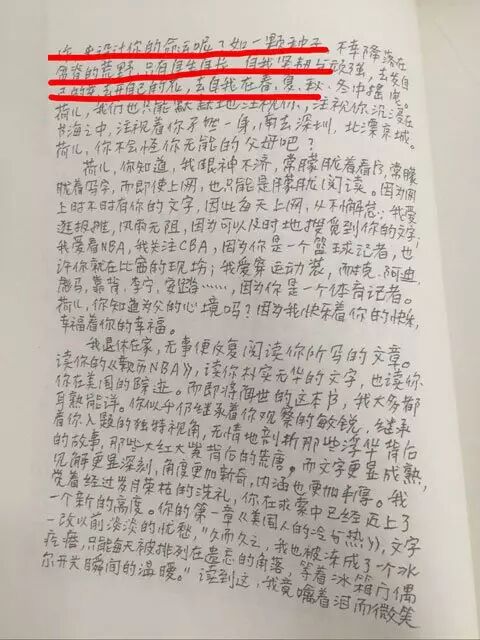 来设计你的命运呢？如一颗种子，不幸降落在
贫瘠的荒野，只有自生自长，自我坚韧与顽强，去发自
己的芽，去开自己的花，去自我在春、夏、秋、冬中摇曳。
荷儿，我们也只能默默地注视你，注视你沉浸在
书海之中，注视着你孑然一身，南去深圳，北漂京城。
荷儿，你不会怪你无能的父母吧？
荷儿，你知道，我眼神不济，常朦胧着看书，常朦
胧着写字，而即使上网，也只能是朦胧阅读。因为网
上时不时有你的文字，因此每天上网，从不懈怠；我爱
逛报摊，风雨无阻，因为可以及时地搜觅到你的文字；
我爱看NBA，我关注CBA，因为你是一个篮球记者，也
许你就在比赛的现场；我爱穿运动装，耐克、阿迪、
彪马、靠背、李宁、安踏……，因为你是一个体育记者。
荷儿，你知道为父的心境吗？因为我快乐着你的快乐，
幸福着你的幸福。
我退休在家，无事便反复阅读你所写的文章。
读你的《亲历NBA》，读你朴实无华的文字，也读你
你在美国的踪迹。而即将面世的这本书，我大多都
耳熟能详。你似乎仍继承着你观察的敏锐，继承
着你入题的独特视角，无情地剖析那些浮华背后
的故事，那些大红大紫背后的荒唐。而文字更显成熟，
见解更显深刻，角度更加新奇，内涵也更加丰厚。我
觉着经过岁月荣枯的洗礼，你在求索中已经迈上了
一个新的高度。你的第一章《美国人的冷与热》，文字
一改以前淡淡的忧愁，“久而久之，我也被冻成了一个冰
疙瘩，只能每天被排列在遗忘的角落，等着冰箱门偶
尔开关瞬间的温暖。”读到这，我竟噙着泪而微笑